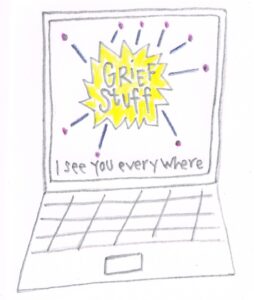 GRiEF
Stuff
I see you every where